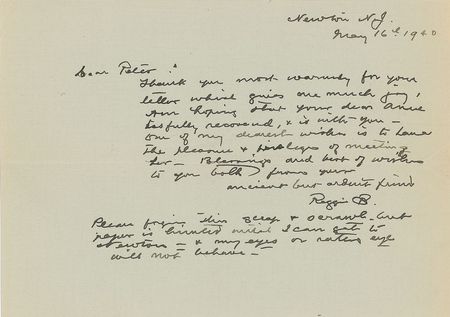 Newton N.J.
May 16th 1940
Dear Peter:
Thank you most warmly for your
letter which gives me much joy,
Am hoping that your dear
is fully recovered, & is with you –
one of my dearest wishes is to have
the pleasure & privilege of meeting
her – Blessings and best of wishes
to you both from your
ancient but ardent friend
Reggie B.
Please forgive this scrap & scrawl – but
paper is limited until I can get to
Newton – & my eyes or rather eye
will not behave –